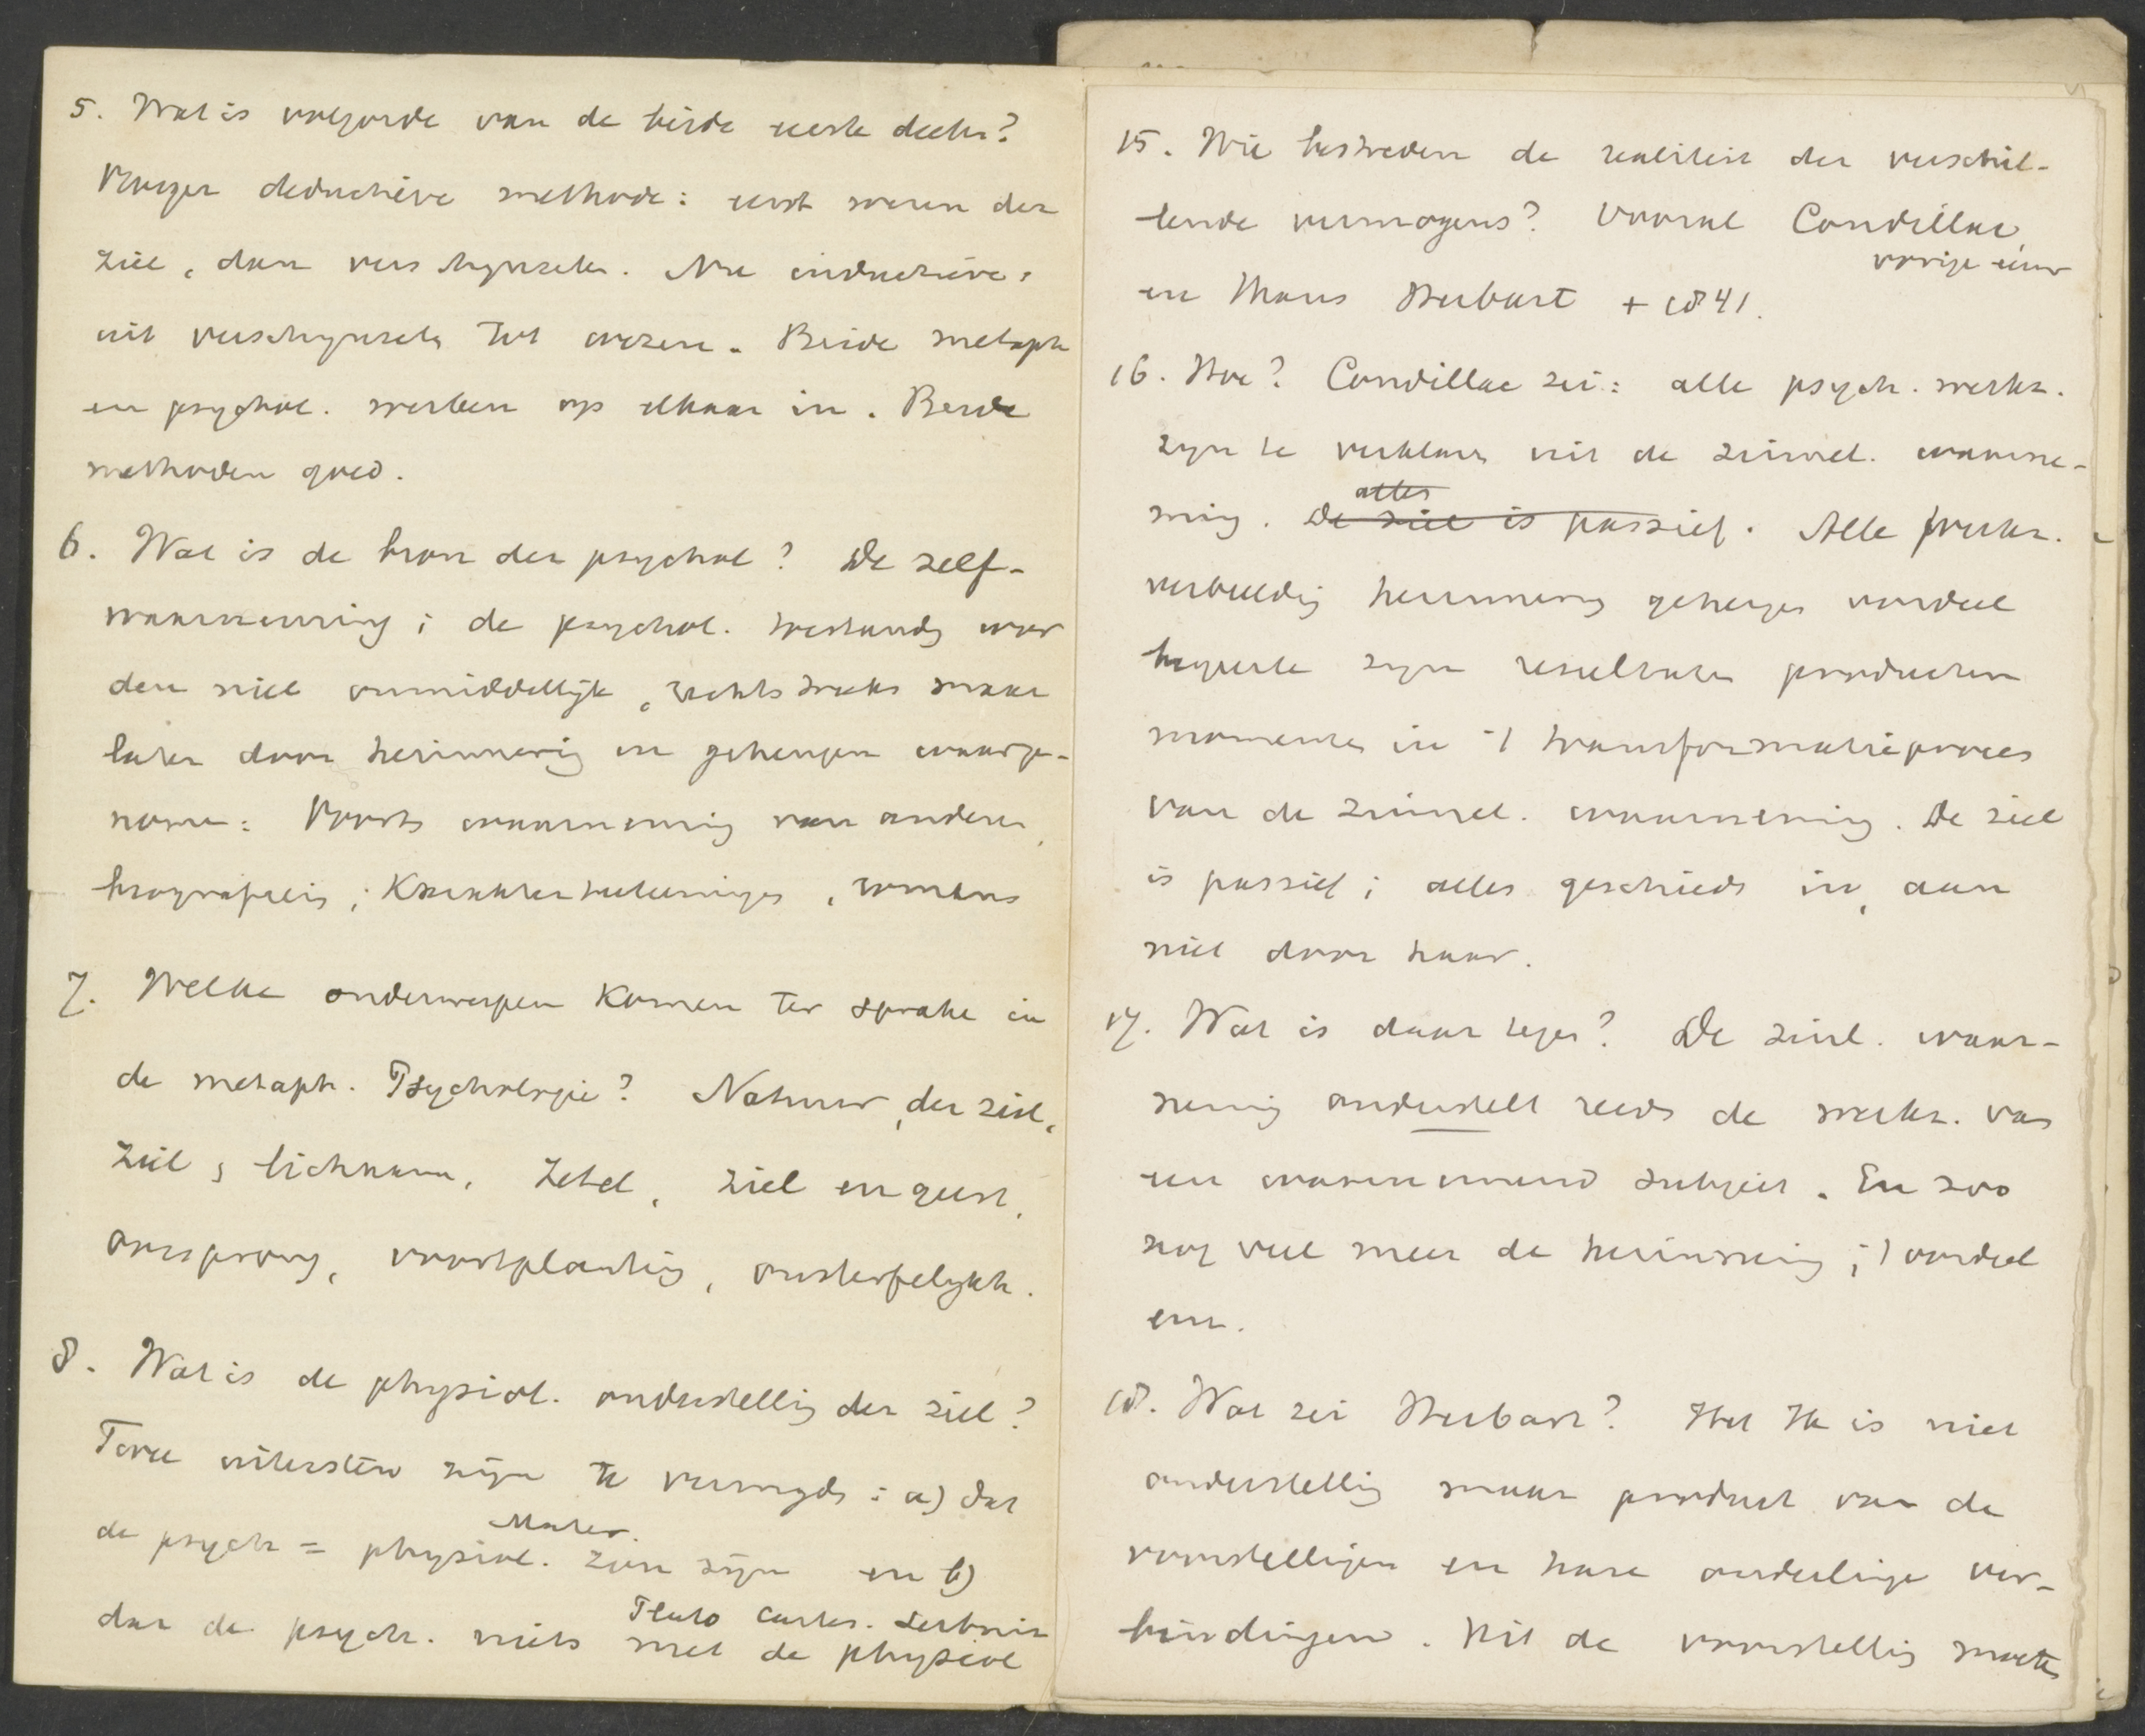 5. Wat is volgorde van de beide eerste deelen?
Vroeger deductieve methode: eerst wezen der
ziel, dan verschynselen. Nu inductieve:
uit verschynselen tot wezen. Beide metaph
en psychol. werken op elkaar in. Beide
methoden goed.
6. Wat is de bron der psychol? De zelf-
waarneming; de psychol. toestandn wor
den niet onmiddellijk, rechtstreeks maar
later door herinnering en geheugen waarge-
nomen: Voorts waarneming van anderen,
biografieën; Karakterteekeningen, romans
7. Welke onderwerpen komen ter sprake in
de metaph. Psychologie? Natuur, der ziel,
ziel, lichaam, Zetel, ziel en geest,
oorsprong, voortplanting, onsterfelykh.
8. Wat is de physiol. onderstelling der ziel?
Twee uitersten zijn te vermyden: a) dat
de psych = physiol. Mater. zou zijn en b)
Plato Cartes. Leibniz
dat de psych. niets met de physiol
15. Wie bestreden de realiteit der verschil-
lende vermogens? Vooral Condillac,
vorige eeuw
en Herbart + 1841.
16. Hoe? Condillac zei: alle psych. werkz.
zyn te verklaren uit de zinnel. waarne-
alles
ming. De ziel is passief. Alle werkz.
verbeelding herinnering geheugen oordeel
begeerte zyn resultaten producten
momenten in 't transformatieproces
van de zinnel. waarneming. De ziel
is passief; alles geschiedt in, aan
niet door haar.
17. Wat is daar tegen? De zinl. waar-
neming onderstelt reeds de werkz. van
een waarnemend subject. En zoo
nog veel meer de herinnering; 't oordeel
enz.
18. Wat zei Herbart? Het Ik is niet
onderstelling maar product van de
voorstellingen en hare onderlinge ver-
bindingen. Uit de voorstelling moeten